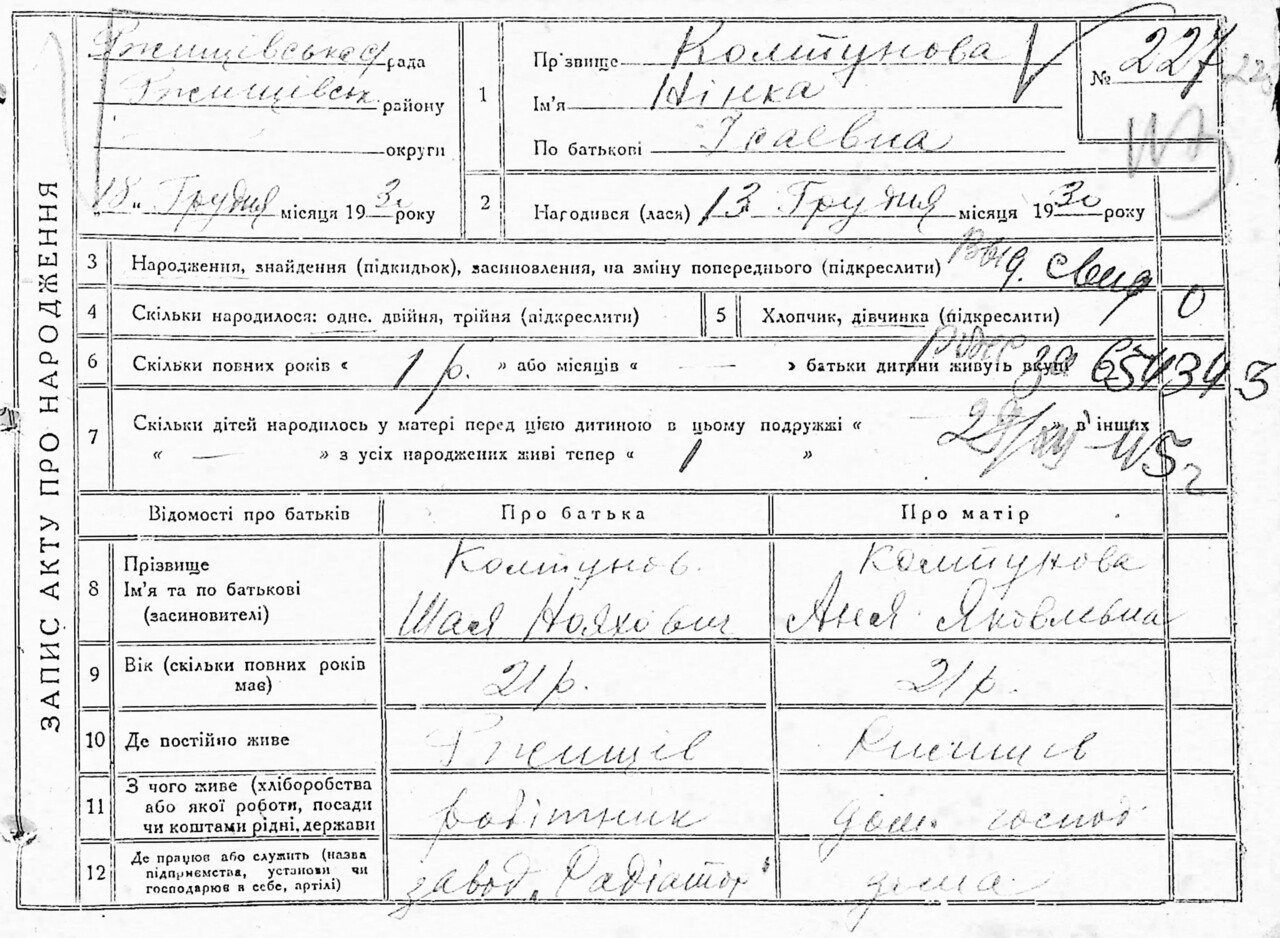 ЗАПИС АКТУ ПРО НАРОДЖЕННЯ
Ржищівська рада
Ржищівськ району
округи
"18" Грудня місяця 1930 року
1
Пр'звище Колтунова
Ім'я Нінка
По батькові Ісаевна
№ 227
2
Народився (лася) 13 Грудня місяця 1930 року
3 Народження, знайдення (підкидьок), засиновлення, на зміну попереднього (підкреслити)
Выд. свид
4 Скільки народилося: одне. двійня, трійня (підкреслити)
5 Хлопчик, дівчинка (підкреслити)
0
6 Скільки повних років « 1 р. » або місяців « — » батьки дитини живуть вкупі
654343
7 Скільки дітей народилось у матері перед цією дитиною в цьому подружжі « — » в інших
« — » з усіх народжених живі тепер « 1 »
45 г
Відомості про батьків
Про батька
Про матір
8 Прізвище
Ім'я та по батькові
(засиновителі)
Колтунов.
Шая Нояхович
Колтунова
Аня Яковлевна
9 Вік (скільки повних років
має)
21 р.
21 р.
10 Де постійно живе
Ржищів
Ржищів
11 З чого живе (хліборобства
або якої роботи, посади
чи коштами рідні, держави
робітник
дом. господ
12 Де працює або служить (назва
підприємства, установи чи
господарює в себе, артілі)
завод „Радіатор"
дома